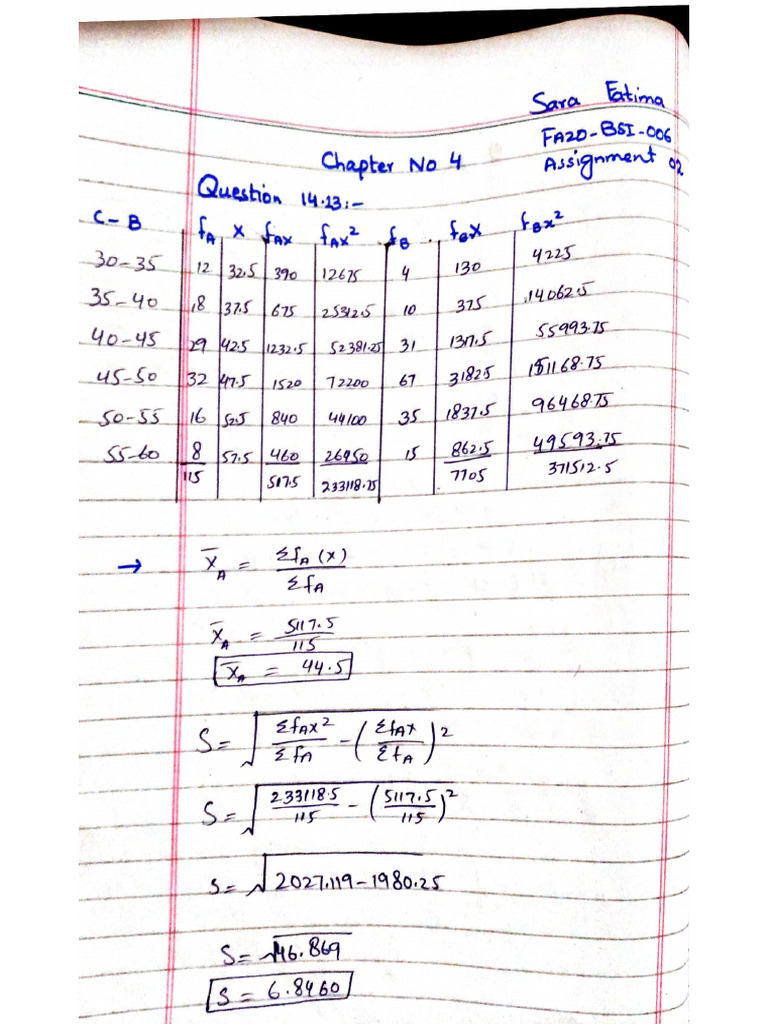 Sara Fatima
FA20-BSI-006
Chapter No 4 Assignment 02
Question 14.23:-
C-B fA x fAx fAx² fB fBx fBx²
30-35 12 32.5 390 12675 4 130 4225
35-40 18 37.5 675 25312.5 10 375 14062.5
40-45 29 42.5 1232.5 52381.25 31 1317.5 55993.75
45-50 32 47.5 1520 72200 67 3182.5 151168.75
50-55 16 52.5 840 44100 35 1837.5 96468.75
55-60 8 57.5 460 26450 15 862.5 49593.75
115 5117.5 233118.75 7705 371512.5
→ x̄A = ΣfA(x) / ΣfA
x̄A = 5117.5 / 115
x̄A = 44.5
S = √(ΣfAx² / ΣfA - (ΣfAx / ΣfA)²)
S = √(233118.5 / 115 - (5117.5 / 115)²)
S = √2027.119-1980.25
S = √46.869
S = 6.8460